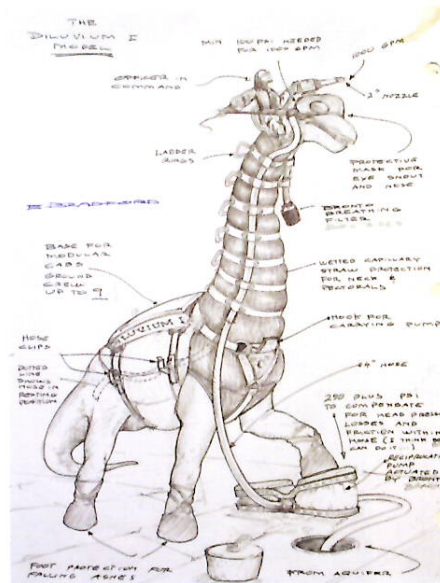 THE
DILUVIUM I
MODEL
MIN 100 PSI NEEDED
FOR 1000 GPM
1000 GPM
2" NOZZLE
OFFICER IN
COMMAND
LADDER
RINGS
PROTECTIVE
MASK FOR
EYE SNOUT
AND NOSE
BRADFORD
BRONTO
BREATHING
FILTER
BASE FOR
MODULAR
CABS
GROUND
CREW
UP TO 9
WETTED CAPILLARY
STRAW PROTECTION
FOR NECK &
PECTORALS
DILUVIUM I
HOOK FOR
CARRYING PUMP
HOSE
CLIPS
DOTTED
LINE
SHOWS
HOSE IN
RESTING
POSITION
4" HOSE
250 PLUS PSI
TO COMPENSATE
FOR HEAD PRESS
LOSSES AND
FRICTION WITHIN
HOSE (I THINK
CAN DO IT...)
PUMP
ACTUATED
BY BRONT
FOOT PROTECTION FOR
FALLING ASHES
FROM AQUIFER